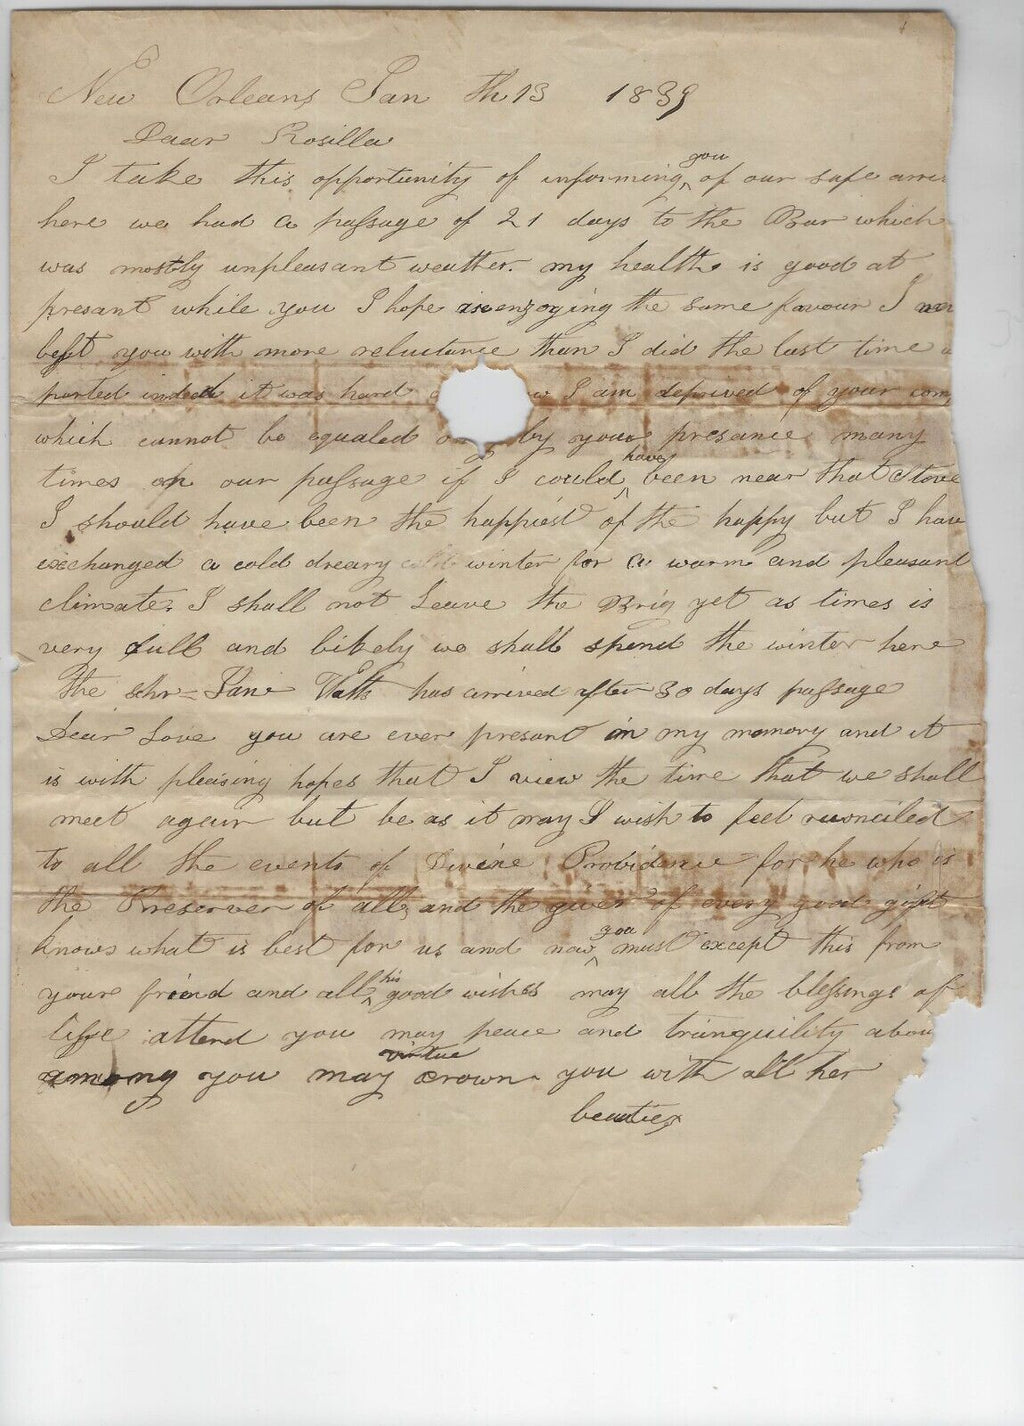 New Orleans Jan th 13 1839
Dear Rosilla
I take this opportunity of informing you of our safe arriv
here we had a passage of 21 days to the Bar which
was mostly unpleasant weather. my health is good at
presant while you I hope is enjoying the same favour I
left you with more reluctance than I did the last time
parted indeed it was hard I am deprived of your com
which cannot be equaled by your presance many
times on our passage if I could have been near that Stove
I should have been the happiest of the happy but I have
exchanged a cold dreary winter for a warm and pleasant
climate. I shall not Leave the Brig yet as times is
very dull and likely we shall spend the winter here
the schr Jane has arrived after 30 days passage
Dear Love you are ever presant in my memory and it
is with pleasing hopes that I view the time that we shall
meet again but be as it may I wish to feel reconciled
to all the events of Divine Providence for he who is
the Preserver of all and the giver of every good gift
knows what is best for us and now you must except this from
youre friend and all his good wishes may all the blessings of
life attend you may peace and tranquility abou
among you may virtue crown you with all her
beauties